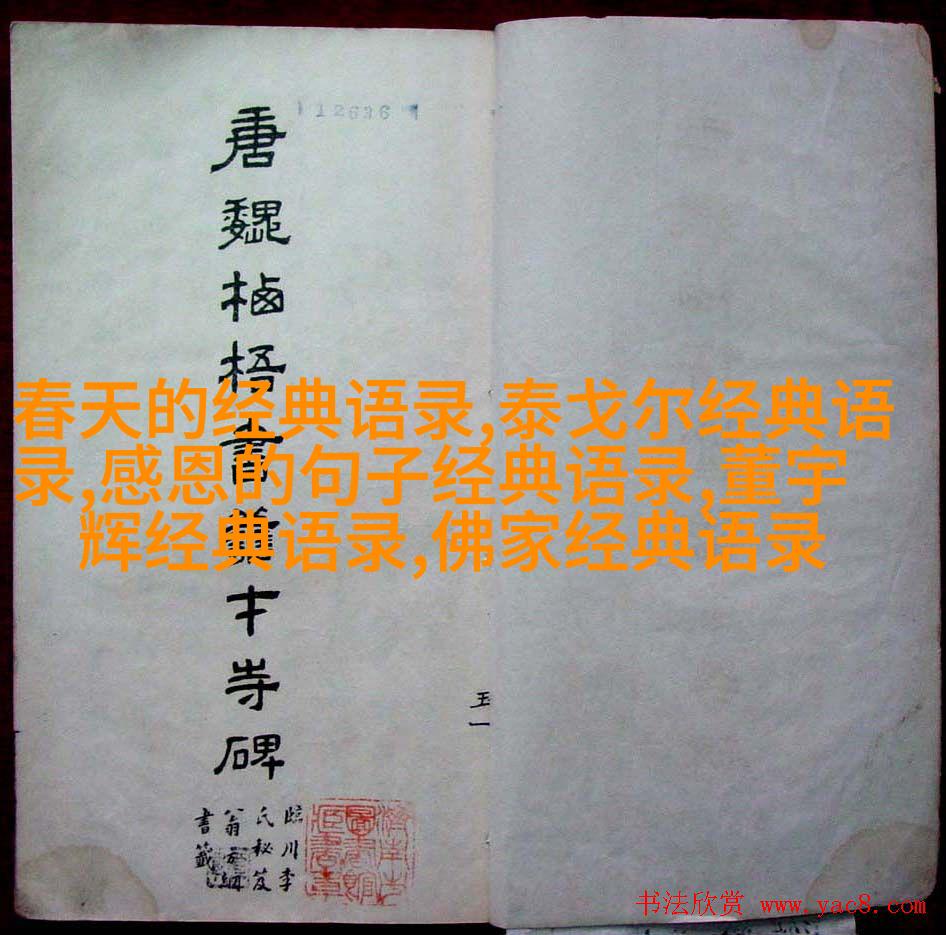 唐魏栖梧書善才寺碑
12636
春天的经典语录,泰戈尔经典语
录,感恩的句子经典语录,董宇
辉经典语录,佛家经典语录
五一
臨川李
氏秘笈
翁方綱
書籤
书法欣赏 www.yac8.com